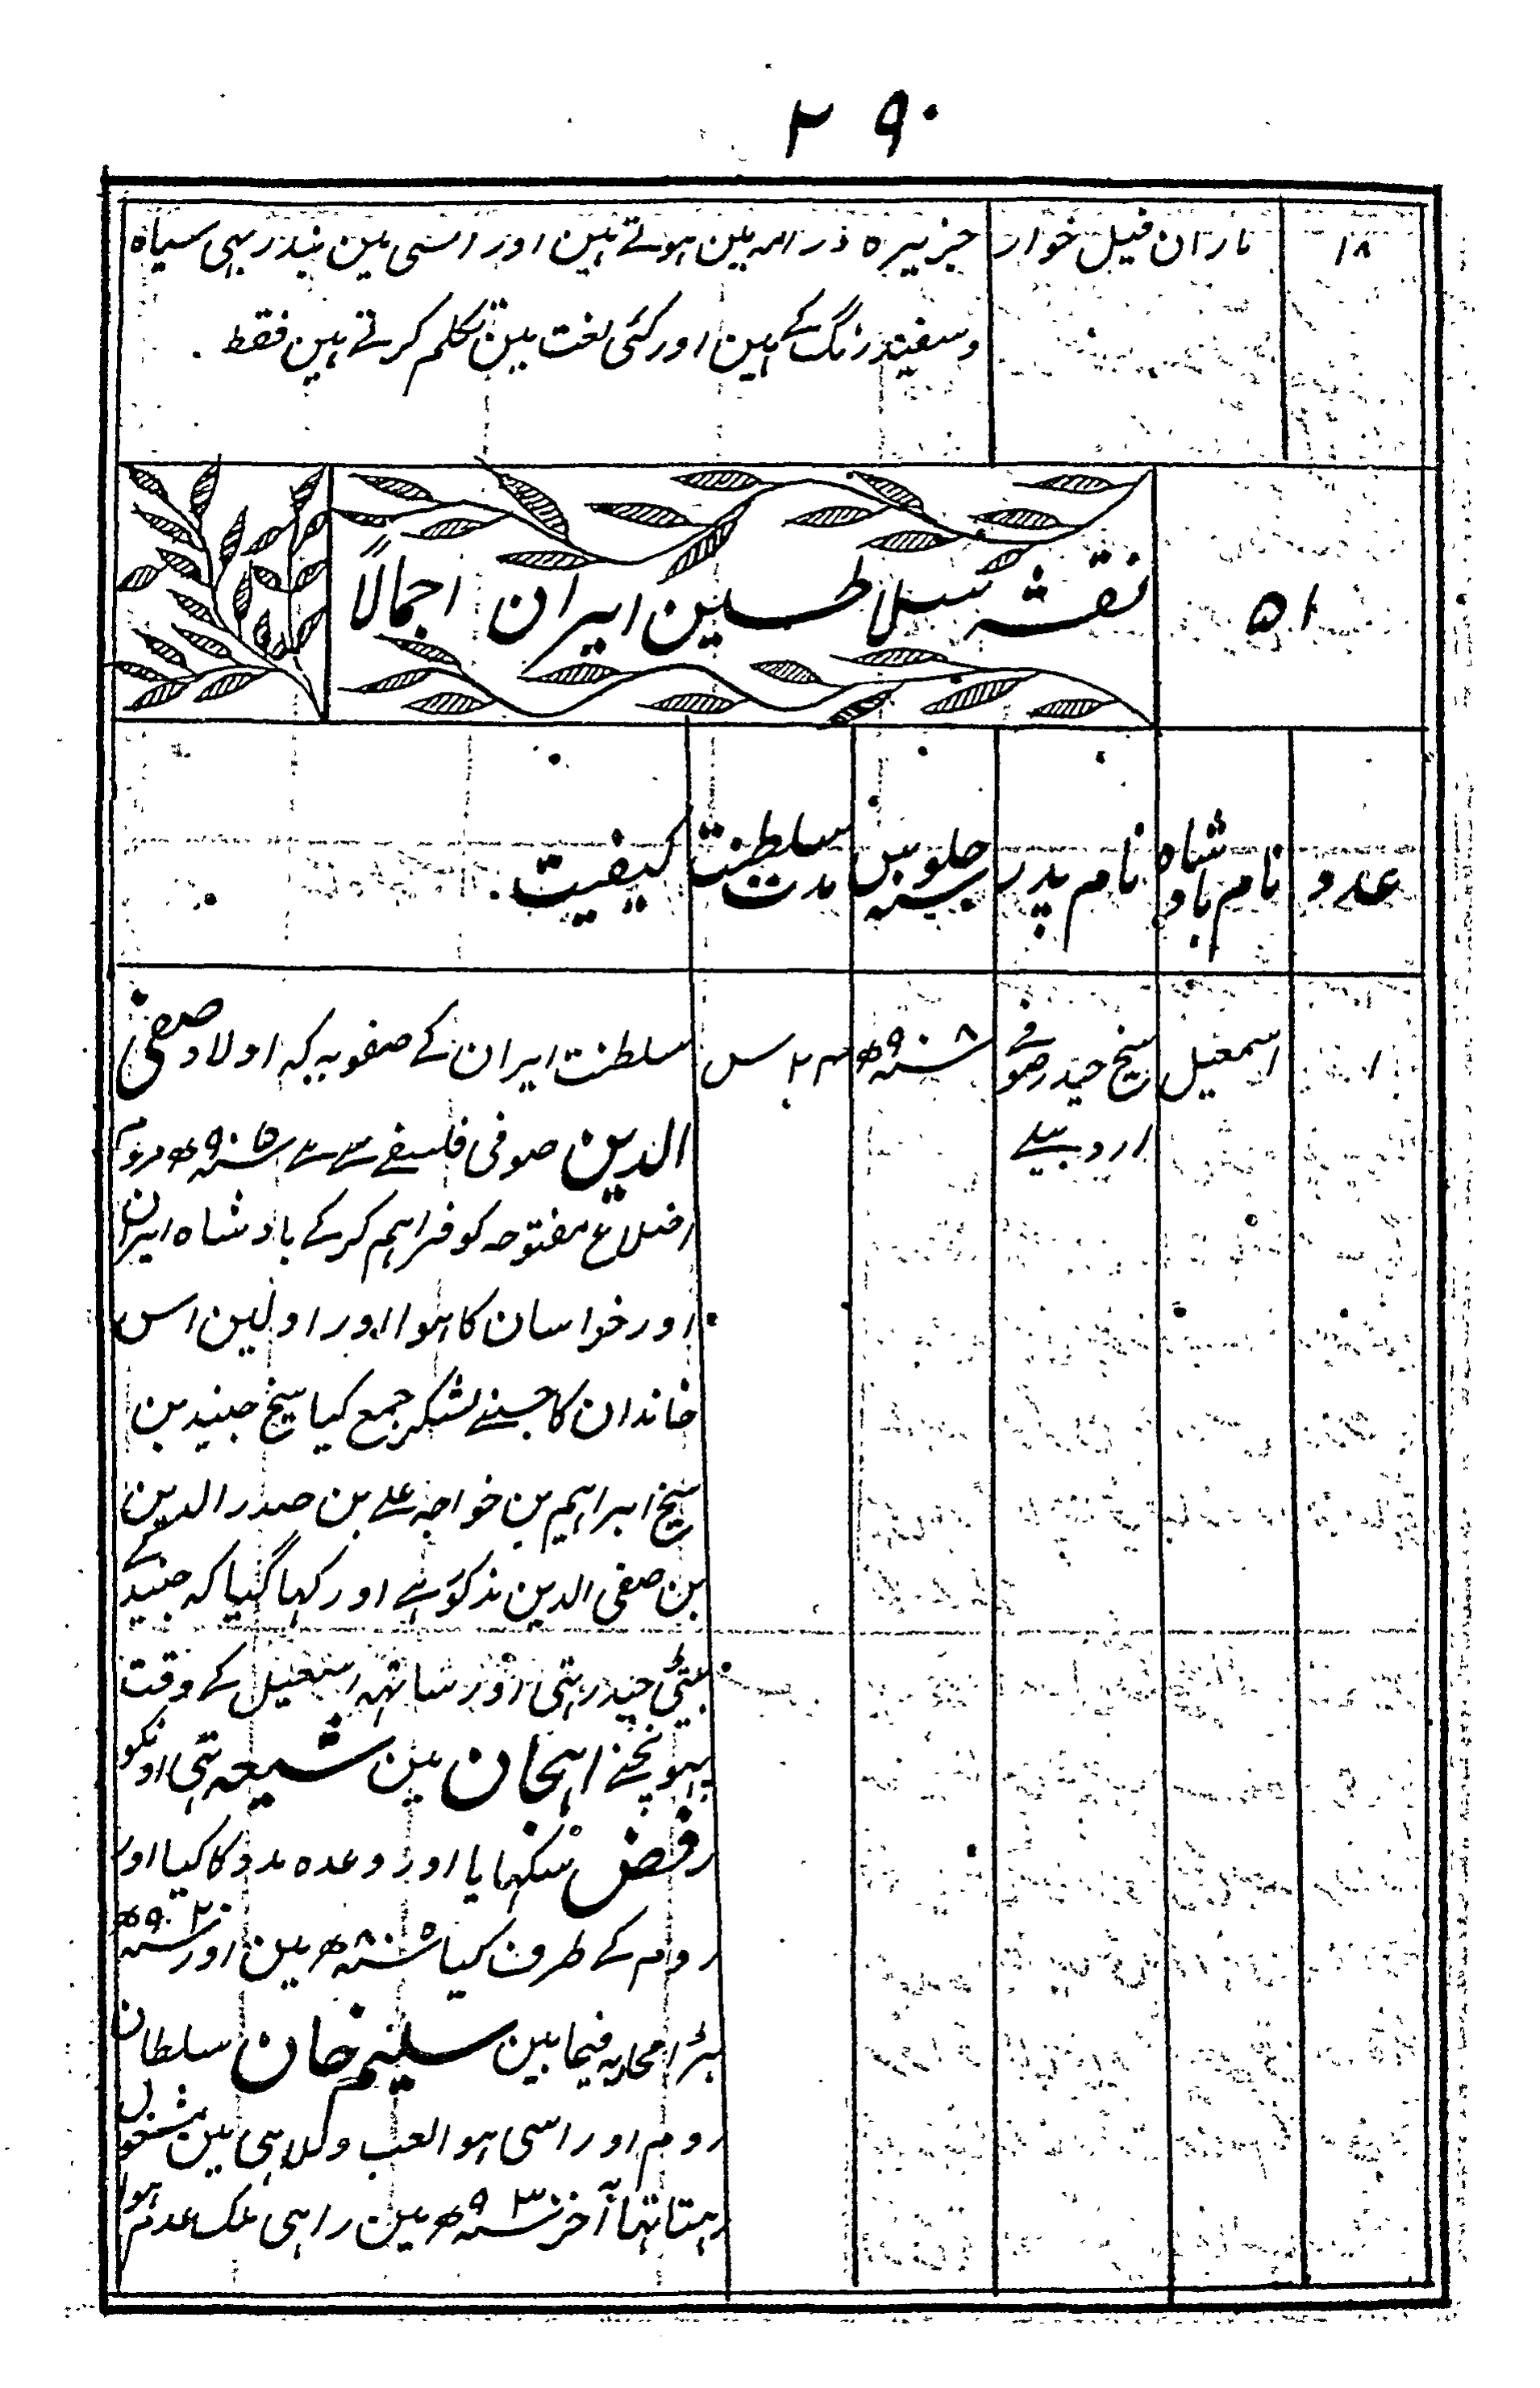 ۲۹۰
۱۸ ماران فیل خوار جزیرہ ذرالہ مین ہوتے ہین اور اسی مین بندر بہی سیاہ
و سفید رنگ کے ہین اور کئی لغت مین تکلم کرتے ہین فقط
۵۱ نقشہ سلاطین ایران اجمالاً
عدد نام بادشاہ نام پدر سنہ جلوس مدت سلطنت کیفیت
۱ اسمعیل شیخ حیدر صوفے ۲۴ س سلطنت ایران کے صفویہ کہ اولاد صفی
اردبیلے الدین صوفی فلسفے سے ہے
اضلاع مفتوحہ کو فراہم کر کے بادشاہ ایران
اور خراسان کا ہوا اور اولین اس
خاندان کا جسنے لشکر جمع کیا شیخ جنید بن
شیخ ابراہیم بن خواجہ علے بن صدر الدین
بن صفی الدین مذکور ہے اور کہا گیا کہ جنید کے
بیٹی حیدر تہی اور ساتہہ اسمعیل کے وقت
پہونچنے اہجان مین شیعہ تہی اونکو
رفض سکہایا اور وعدہ مدد کا کیا اور
روم کے طرف گیا مین اور
بڑا محاربہ فیمابین سلیم خان سلطان
روم اور اسی ہوا لعب و ملاہی مین مشغول
رہتا تہا آخر سنہ ۹۳۰ھ مین راہی ملک عدم ہوا